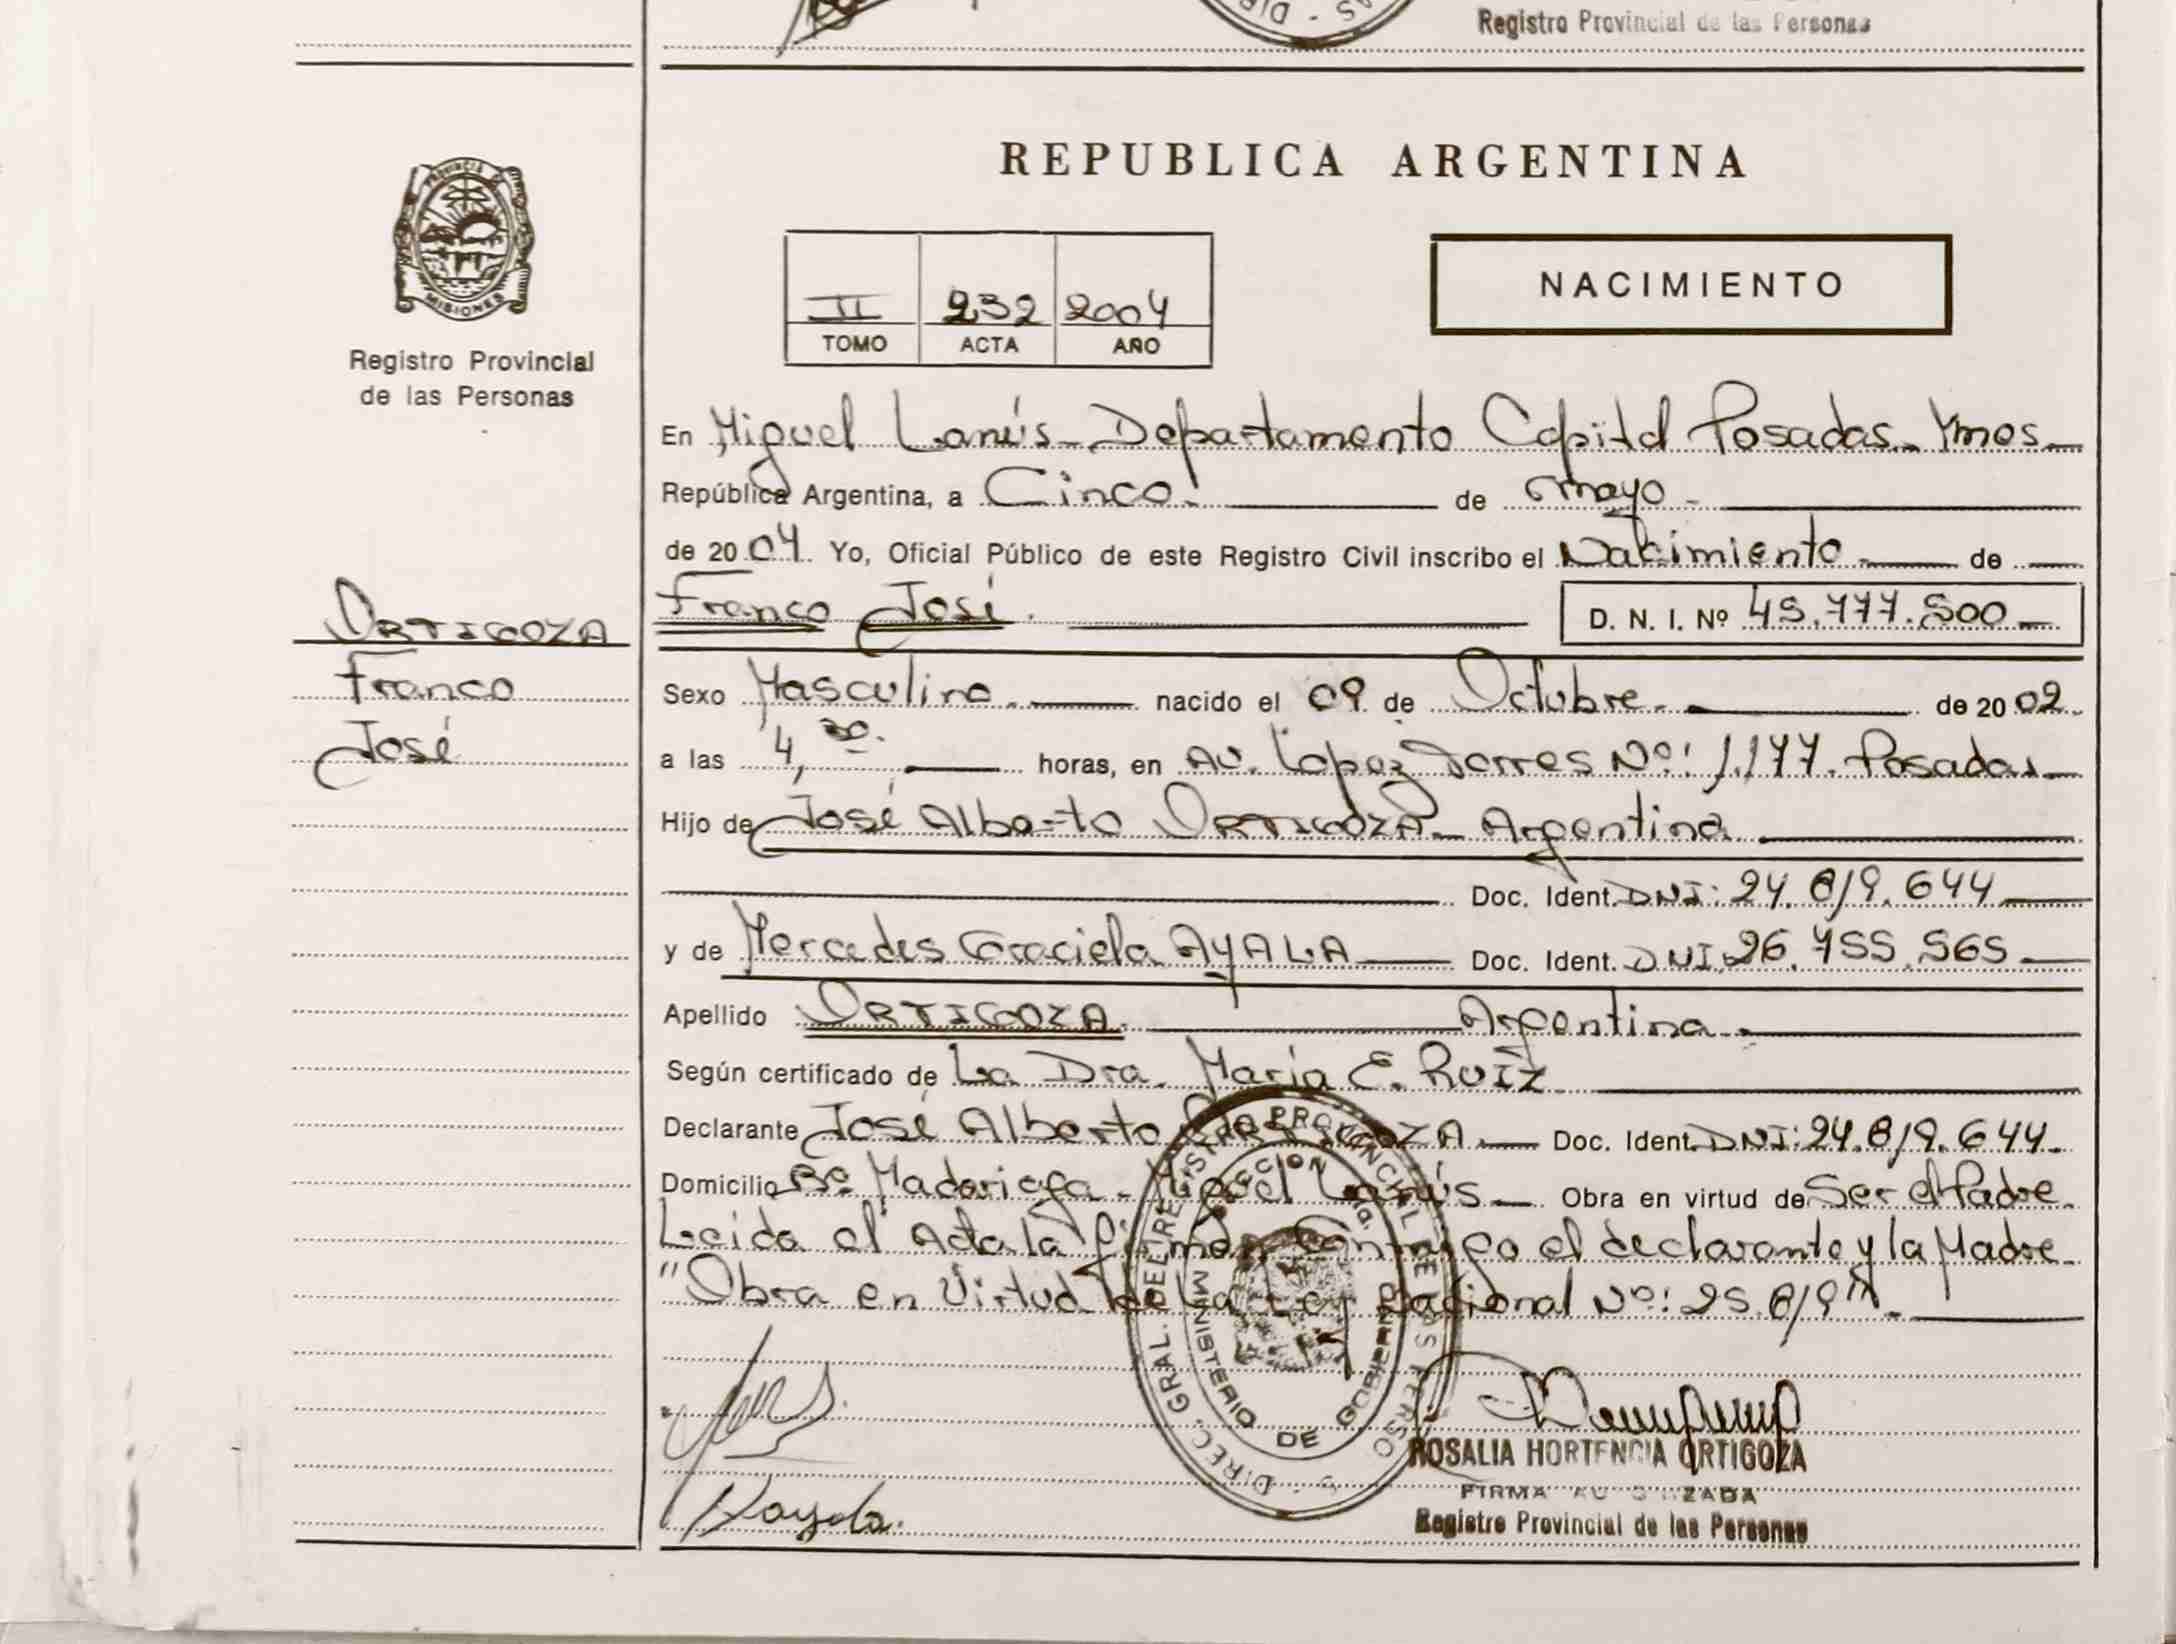 Registro Provincial de las Personas
REPUBLICA ARGENTINA
PROVINCIA DE
MISIONES
Registro Provincial
de las Personas
II 232 2004
TOMO ACTA AÑO
NACIMIENTO
En Miguel Lanús - Departamento Capital Posadas - Mnes -
República Argentina, a Cinco. de mayo -
de 2004. Yo, Oficial Público de este Registro Civil inscribo el Nacimiento de
ORTIGOZA
Franco José.
D. N. I. Nº 45.777.500
Franco
José
Sexo Masculino. nacido el 09 de Octubre. de 2002.
a las 4,30. horas, en Av. Lopez Torres Nº: 1.177. Posadas
Hijo de José Alberto ORTIGOZA - Argentina
Doc. Ident. DNI: 24.819.644
y de Mercedes Graciela AYALA Doc. Ident. DNI. 26.755.565
Apellido ORTIGOZA. Argentina.
Según certificado de La Dra. María E. Ruíz
Declarante José Alberto ORTIGOZA Doc. Ident. DNI: 24.819.644.
Domicilio Bº Madariaga - Miguel Lanús Obra en virtud de Ser el Padre.
Leida el Acta la firman Conmigo el declarante y la Madre
"Obra en Virtud de la Ley Nacional Nº: 25.819".
DIREC. GRAL. DEL REGISTRO PROVINCIAL DE LAS PERSONAS
MINISTERIO DE GOBIERNO
ROSALIA HORTENCIA ORTIGOZA
FIRMA AUTORIZADA
Registro Provincial de las Personas